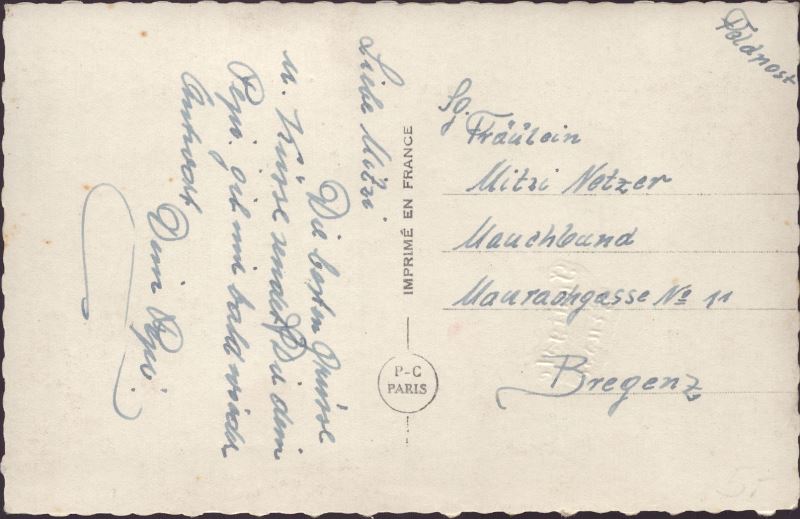 Feldpost
Liebe Mitzi
Die besten Grüsse
u. Küsse sendet Dir dein
Pepi. gib mir bald wieder
Antwort
Dein Pepi
IMPRIMÉ EN FRANCE
P-C
PARIS
Sg.
Fräulein
Mitzi Netzer
Maurachgasse No 11
Bregenz